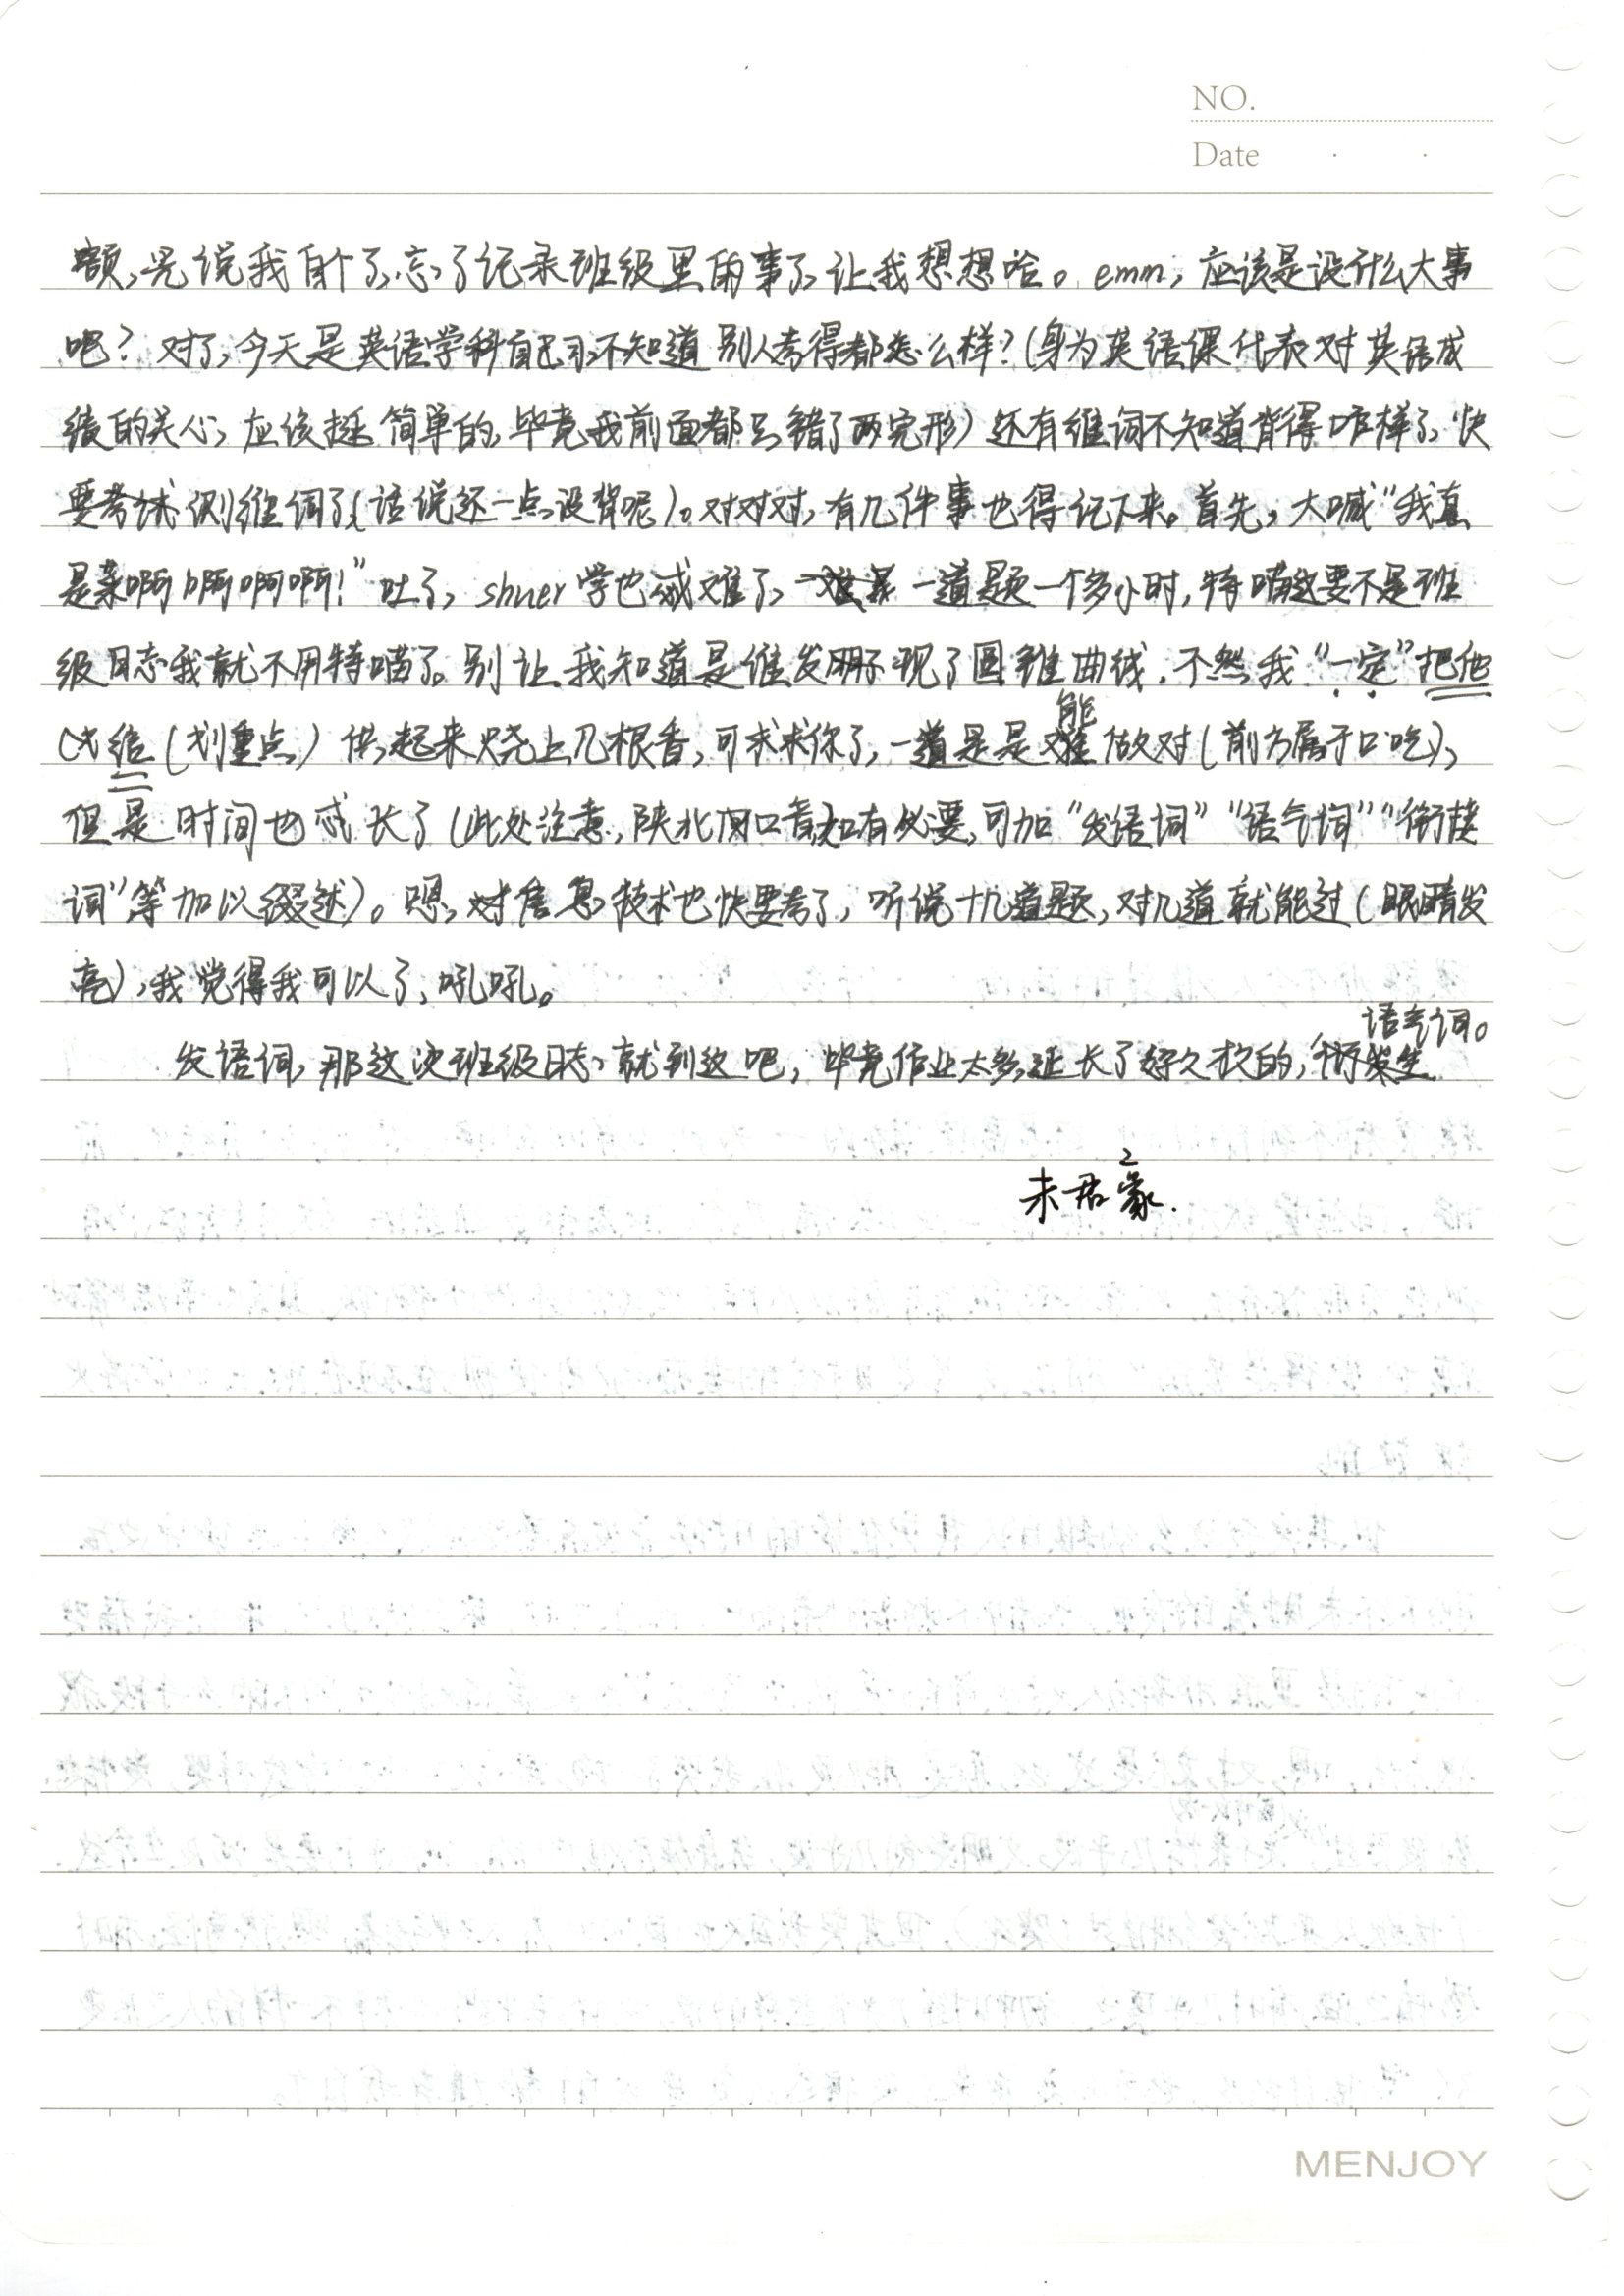 NO.
Date
额,光说我自个了,忘了记录班级里的事了,让我想想哈。emm,应该是没什么大事
吧?对了,今天是英语学科自习,不知道别人考得都怎么样?(身为英语课代表对英语成
绩的关心,应该挺简单的,毕竟我前面都只错了两完形)还有维词不知道背得咋样了,快
要考试测维词了(话说还一点没背呢)。对对对,有几件事也得记下来。首先,大喊“我真
是菜啊啊啊啊!”吐了,shuer学也忒难了,一道题一个多小时,特喵这要不是班
级日志我就不用特喵了。别让我知道是谁发现了圆锥曲线,不然我“一定”把他
给(划重点)供起来烧上几根香,可求求你了,一道是是能做对(前方属于口吃),
但是时间也忒长了(此处注意,陕北口音,如有必要,可加“发语词”“语气词”“衔接
词”等加以缀述)。嗯,对信息技术也快要考了,听说十几道题,对几道就能过(眼睛发
亮),我觉得我可以了,吼吼。
语气词。
发语词,那这次班级日志,就到这吧,毕竟作业太多,延长了好久才的,
2
朱君豪.
MENJOY